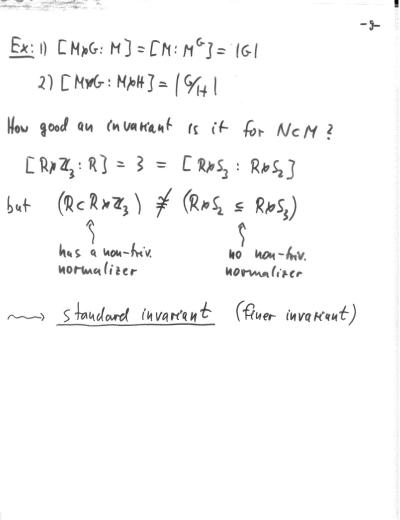 -9-
Ex: 1) [M⋊G : M] = [M : M^G] = |G|
2) [M⋊G : M⋊H] = |G/H|
How good an invariant is it for N⊂M ?
[R⋊ℤ₃ : R] = 3 = [R⋊S₃ : R⋊S₂]
but (R⊂R⋊ℤ₃) ≇ (R⋊S₂ ⊆ R⋊S₃)
has a non-triv. no non-triv.
normalizer normalizer
⇝ standard invariant (finer invariant)